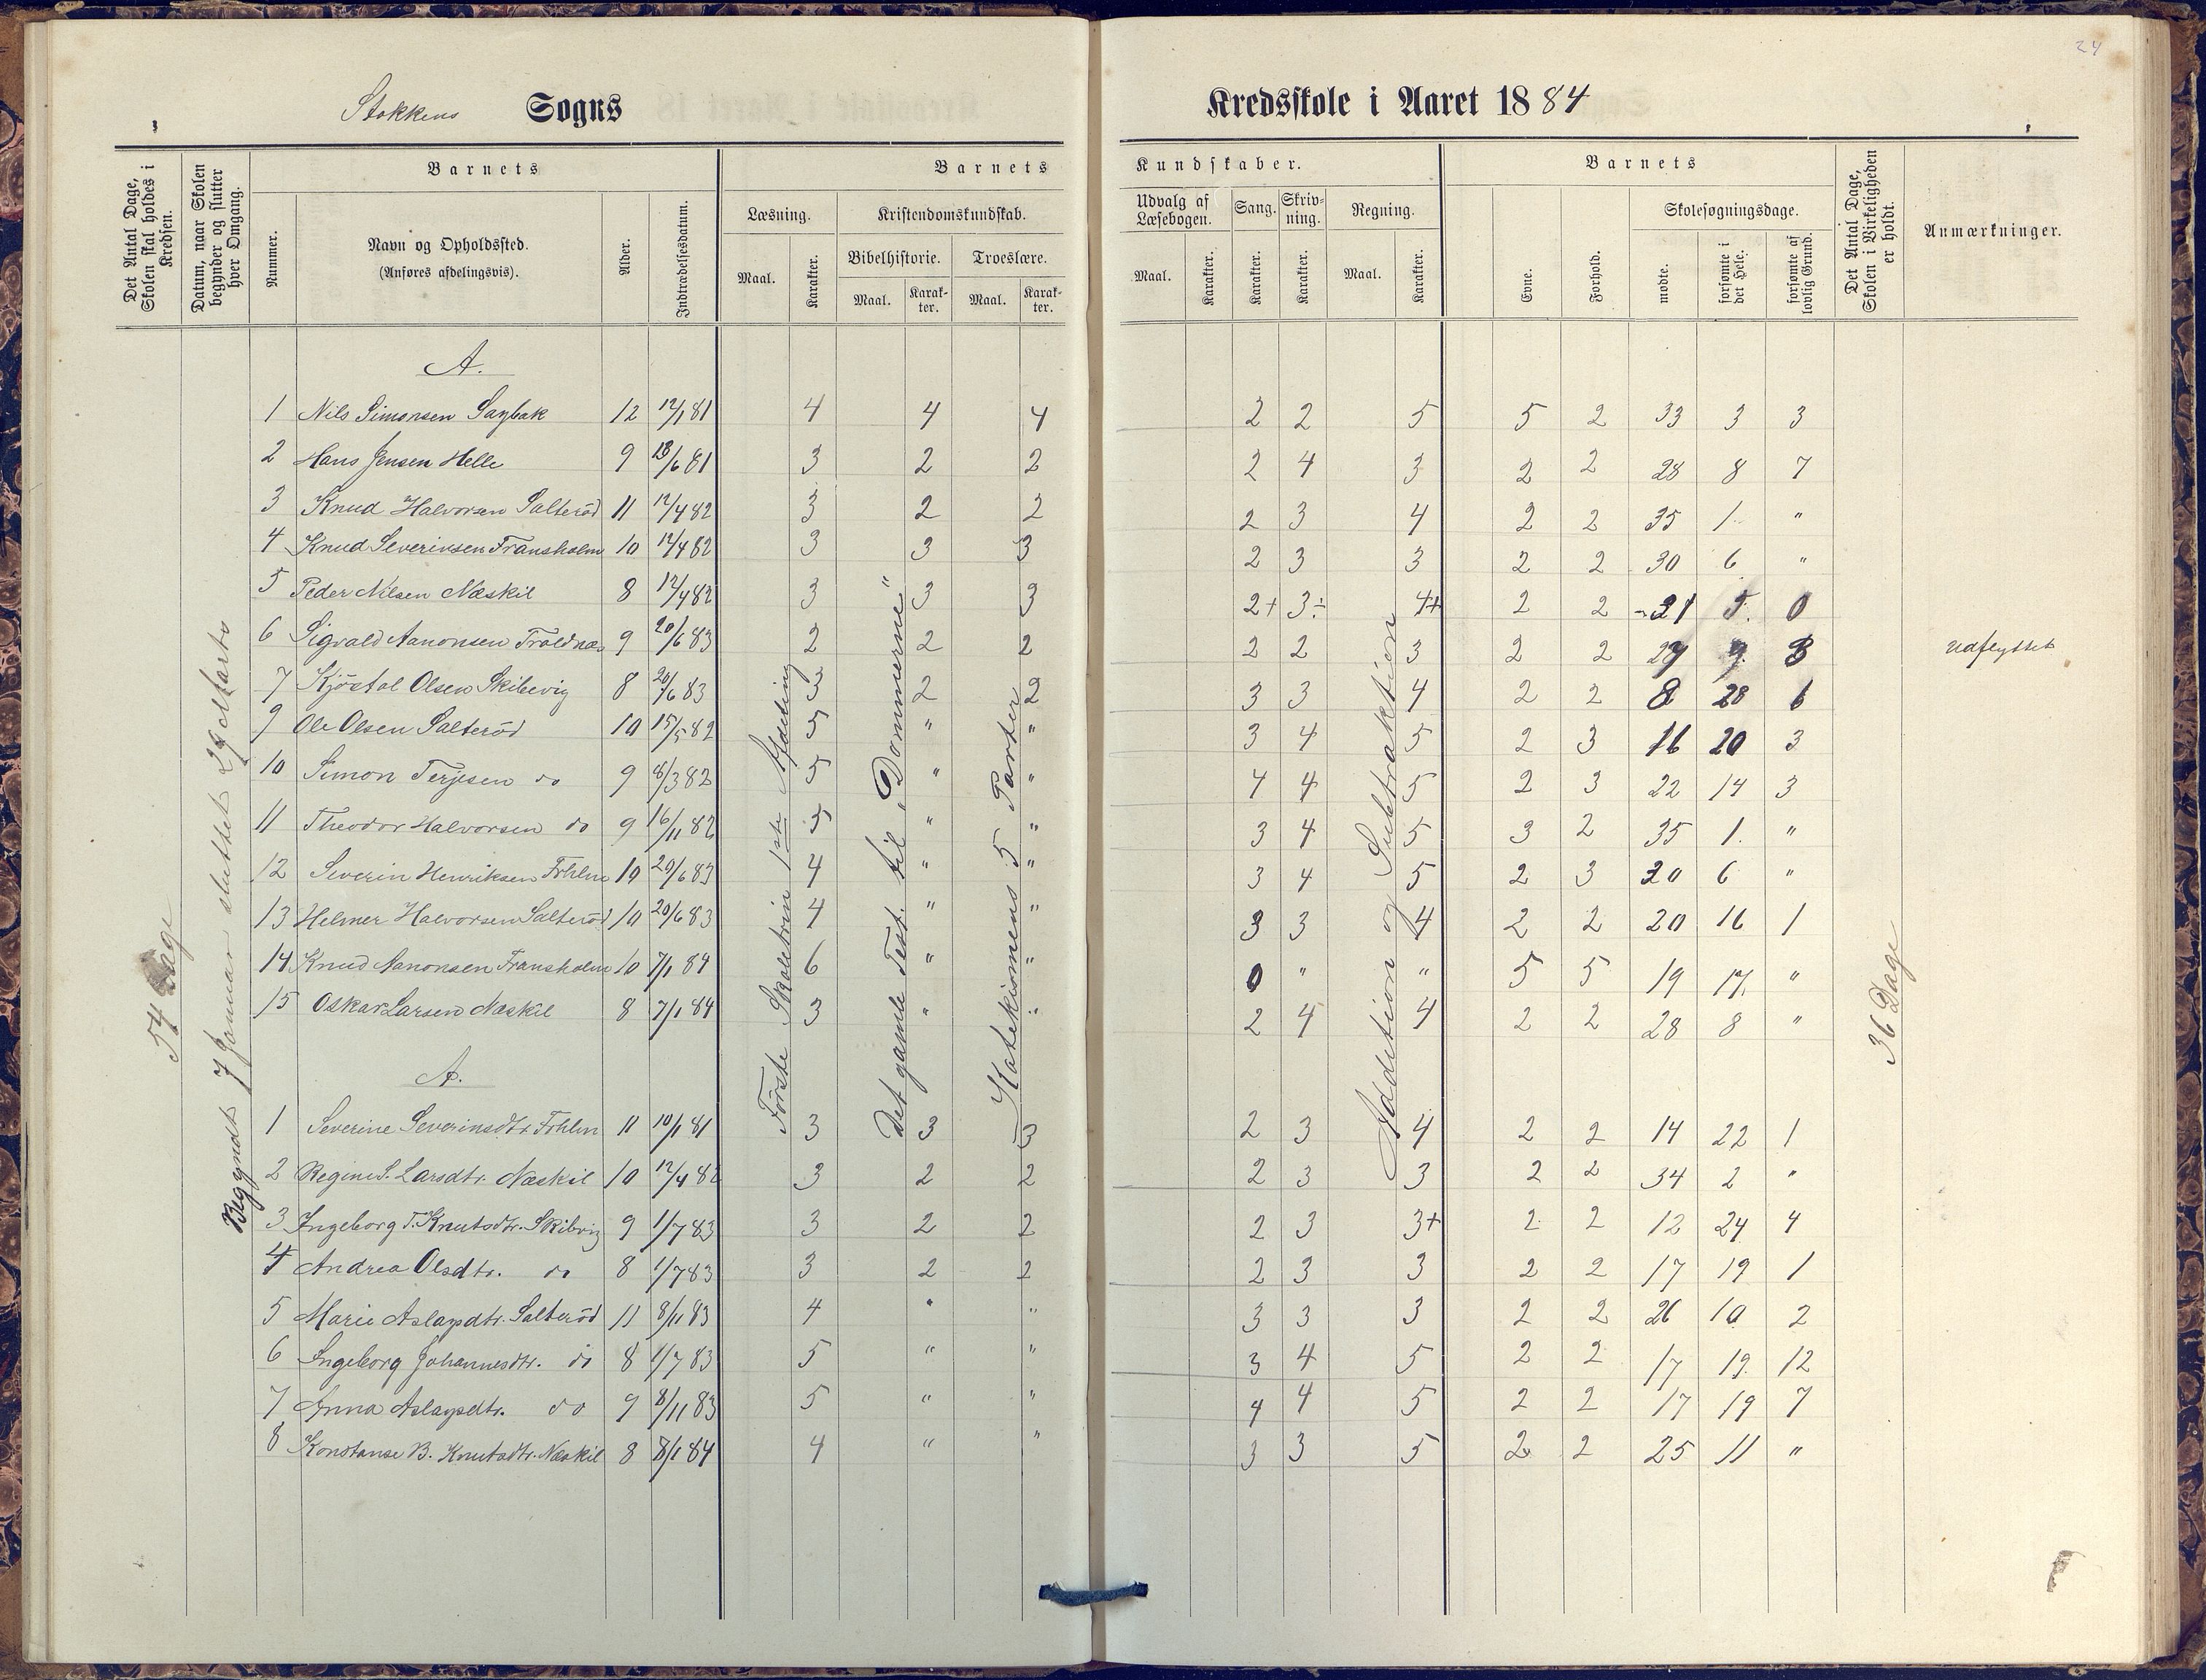 24
Stokkens Sogns Kredsskole i Aaret 1884
Det Antal Dage, Skolen skal holdes i Kredsen.
Datum, naar Skolen begynder og slutter hver Omgang.
Barnets
Nummer.
Navn og Opholdssted.
(Anføres afdelingsvis).
Alder.
Indtrædelsesdatum.
Barnets Kundskaber.
Læsning.
Maal.
Karakter.
Kristendomskundskab.
Bibelhistorie.
Maal.
Karak-
ter.
Troeslære.
Maal.
Karak-
ter.
Udvalg af
Læsebogen.
Maal.
Karakter.
Sang.
Karakter.
Skriv-
ning.
Karakter.
Regning.
Maal.
Karakter.
Barnets
Evne.
Forhold.
Skolesøgningsdage.
mødte.
forsømte i det Hele.
forsømte af lovlig Grund.
Det Antal Dage, Skolen i Virkeligheden er holdt.
Anmærkninger.
54 Dage
Begyndt 7 Januar sluttet 29 Marts
Første Skoletrin 1ste Afdeling
Det gamle Test. til "Dommerne"
Katekismens 5 Parter
Addition og Subtraktion
36 Dage
A.
1 Nils Simonsen 12 12/1 81 4 4 4 2 2 5 5 2 33 3 3
2 Hans Jensen Helle 9 13/6 81 3 2 2 2 4 3 2 2 28 8 7
3 Knud Halvorsen Salterød 11 12/4 82 3 2 2 2 3 4 2 2 35 1 "
4 Knud Severinsen Fransholm 10 12/4 82 3 3 3 2 3 3 2 2 30 6 "
5 Peder Nilsen Næskil 8 12/4 82 3 3 3 2+ 3÷ 4+ 2 2 31 5. 0
6 Sigvald Aanonsen Troldnæs 9 20/6 83 2 2 2 2 2 3 2 2 27 9 8 udflyttet
7 Kjøstol Olsen Skibevig 8 20/6 83 3 2 2 3 3 4 2 2 8 28 6
9 Ole Olsen Salterød 10 15/5 82 5 " " 3 4 5 2 3 16 20 3
10 Simon Terjesen do 9 8/3 82 5 " " 4 4 5 2 3 22 14 3
11 Theodor Halvorsen do 9 16/11 82 5 " " 3 4 5 3 2 35 1. "
12 Severin Henriksen Frhlm 10 20/6 83 4 " " 3 4 5 2 3 30 6 "
13 Helmer Halvorsen Salterød 10 20/6 83 4 " " 3 3 4 2 2 20 16 1
14 Knud Aanonsen Fransholm 10 7/1 84 6 " " 0 " " 5 5 19 17. "
15 Oskar Larsen Næskil 8 7/1 84 3 " " 2 4 4 2 2 28 8 "
A.
1 Severine Severinsdtr Frhlm 11 10/1 81 3 3 3 2 3 4 2 2 14 22 1
2 Regine S. Larsdtr. Næskil 10 12/4 82 3 2 2 2 3 3 2 2 34 2 "
3 Ingeborg T. Knutsdtr. Skibvig 9 1/7 83 3 2 2 2 3 3+ 2 2 12 24 4
4 Andrea Olsdtr. do 8 1/7 83 3 2 2 2 3 3 2 2 17 19 1
5 Marie Aslagsdtr. Salterød 11 8/11 83 4 " " 3 3 3 2 2 26 10 2
6 Ingeborg Johannesdtr. do 8 1/7 83 5 " " 3 4 5 2 2 17 19. 12
7 Anna Aslagsdtr. do 9 8/11 83 5 " " 4 4 5 2 2 17 19 7
8 Konstanse B. Knutsdtr. Næskil 8 8/1 84 4 " " 3 3 5 2 2 25 11 "